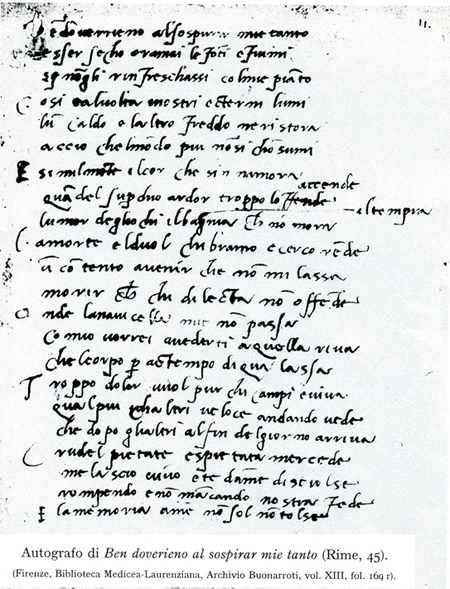 11.
Be doverrieno alsospirar mie tanto
esser secho oramai le foti e fiumi
sy nogli rinfreschassi colmie piāto
Cosi talvolta nostri ecterni lumi
lū caldo e laltro freddo ne ristora
accio chelmōdo piu nōsi chōsumi
E similmēte ilcor che sin namora
accende
quādel supchio ardor troppo loffende
lumor deglochi ilbagnia ch nō mora iltempra
La morte elduol chibramo e cerco rēde
ū cōtento avenir che nō mi lassa
morir ch chi dilecta nō offēde
Onde lanavicella mie nō passa
Comio vorrei avederti aquella riva
chelcorpo p atempo diqua lassa
Troppo dolor vuol pur chi campi eviva
qualpiu chaltri veloce andando vede
che dopo glialtri alfin delgiorno arriva
Crudel pietate espietata mercede
me lascio vivo ete dame disciolse
rompendo enō mācando nostra fede
E lamemoria ame nō sol nō tolse
Autografo di Ben doverieno al sospirar mie tanto (Rime, 45).
(Firenze, Biblioteca Medicea-Laurenziana, Archivio Buonarroti, vol. XIII, fol. 169 r).